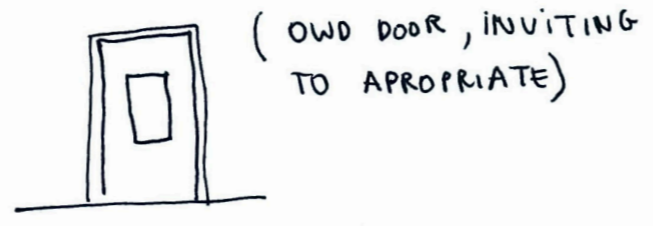 ( OWD DOOR, iNViTiNG
TO APROPRIATE)